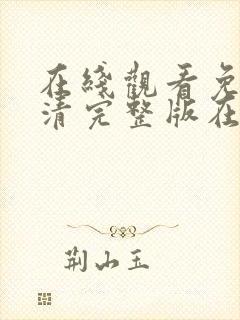 在綫觀看免
清完整版在
荆山玉